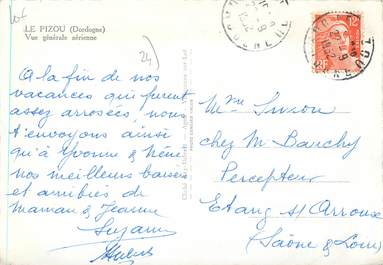 LE PIZOU (Dordogne)
Vue générale aérienne
24)
A la fin de nos
vacances qui furent
assez arrosées, nous
t'envoyons ainsi
qu'à Yvonne & René
nos meilleurs baisers
et amitiés de
maman & Jeanne
Suzanne
Hubert
Mme Simon
chez M Bauchy
Percepteur
Etang s/ Arroux
(Saône & Loire)
12F